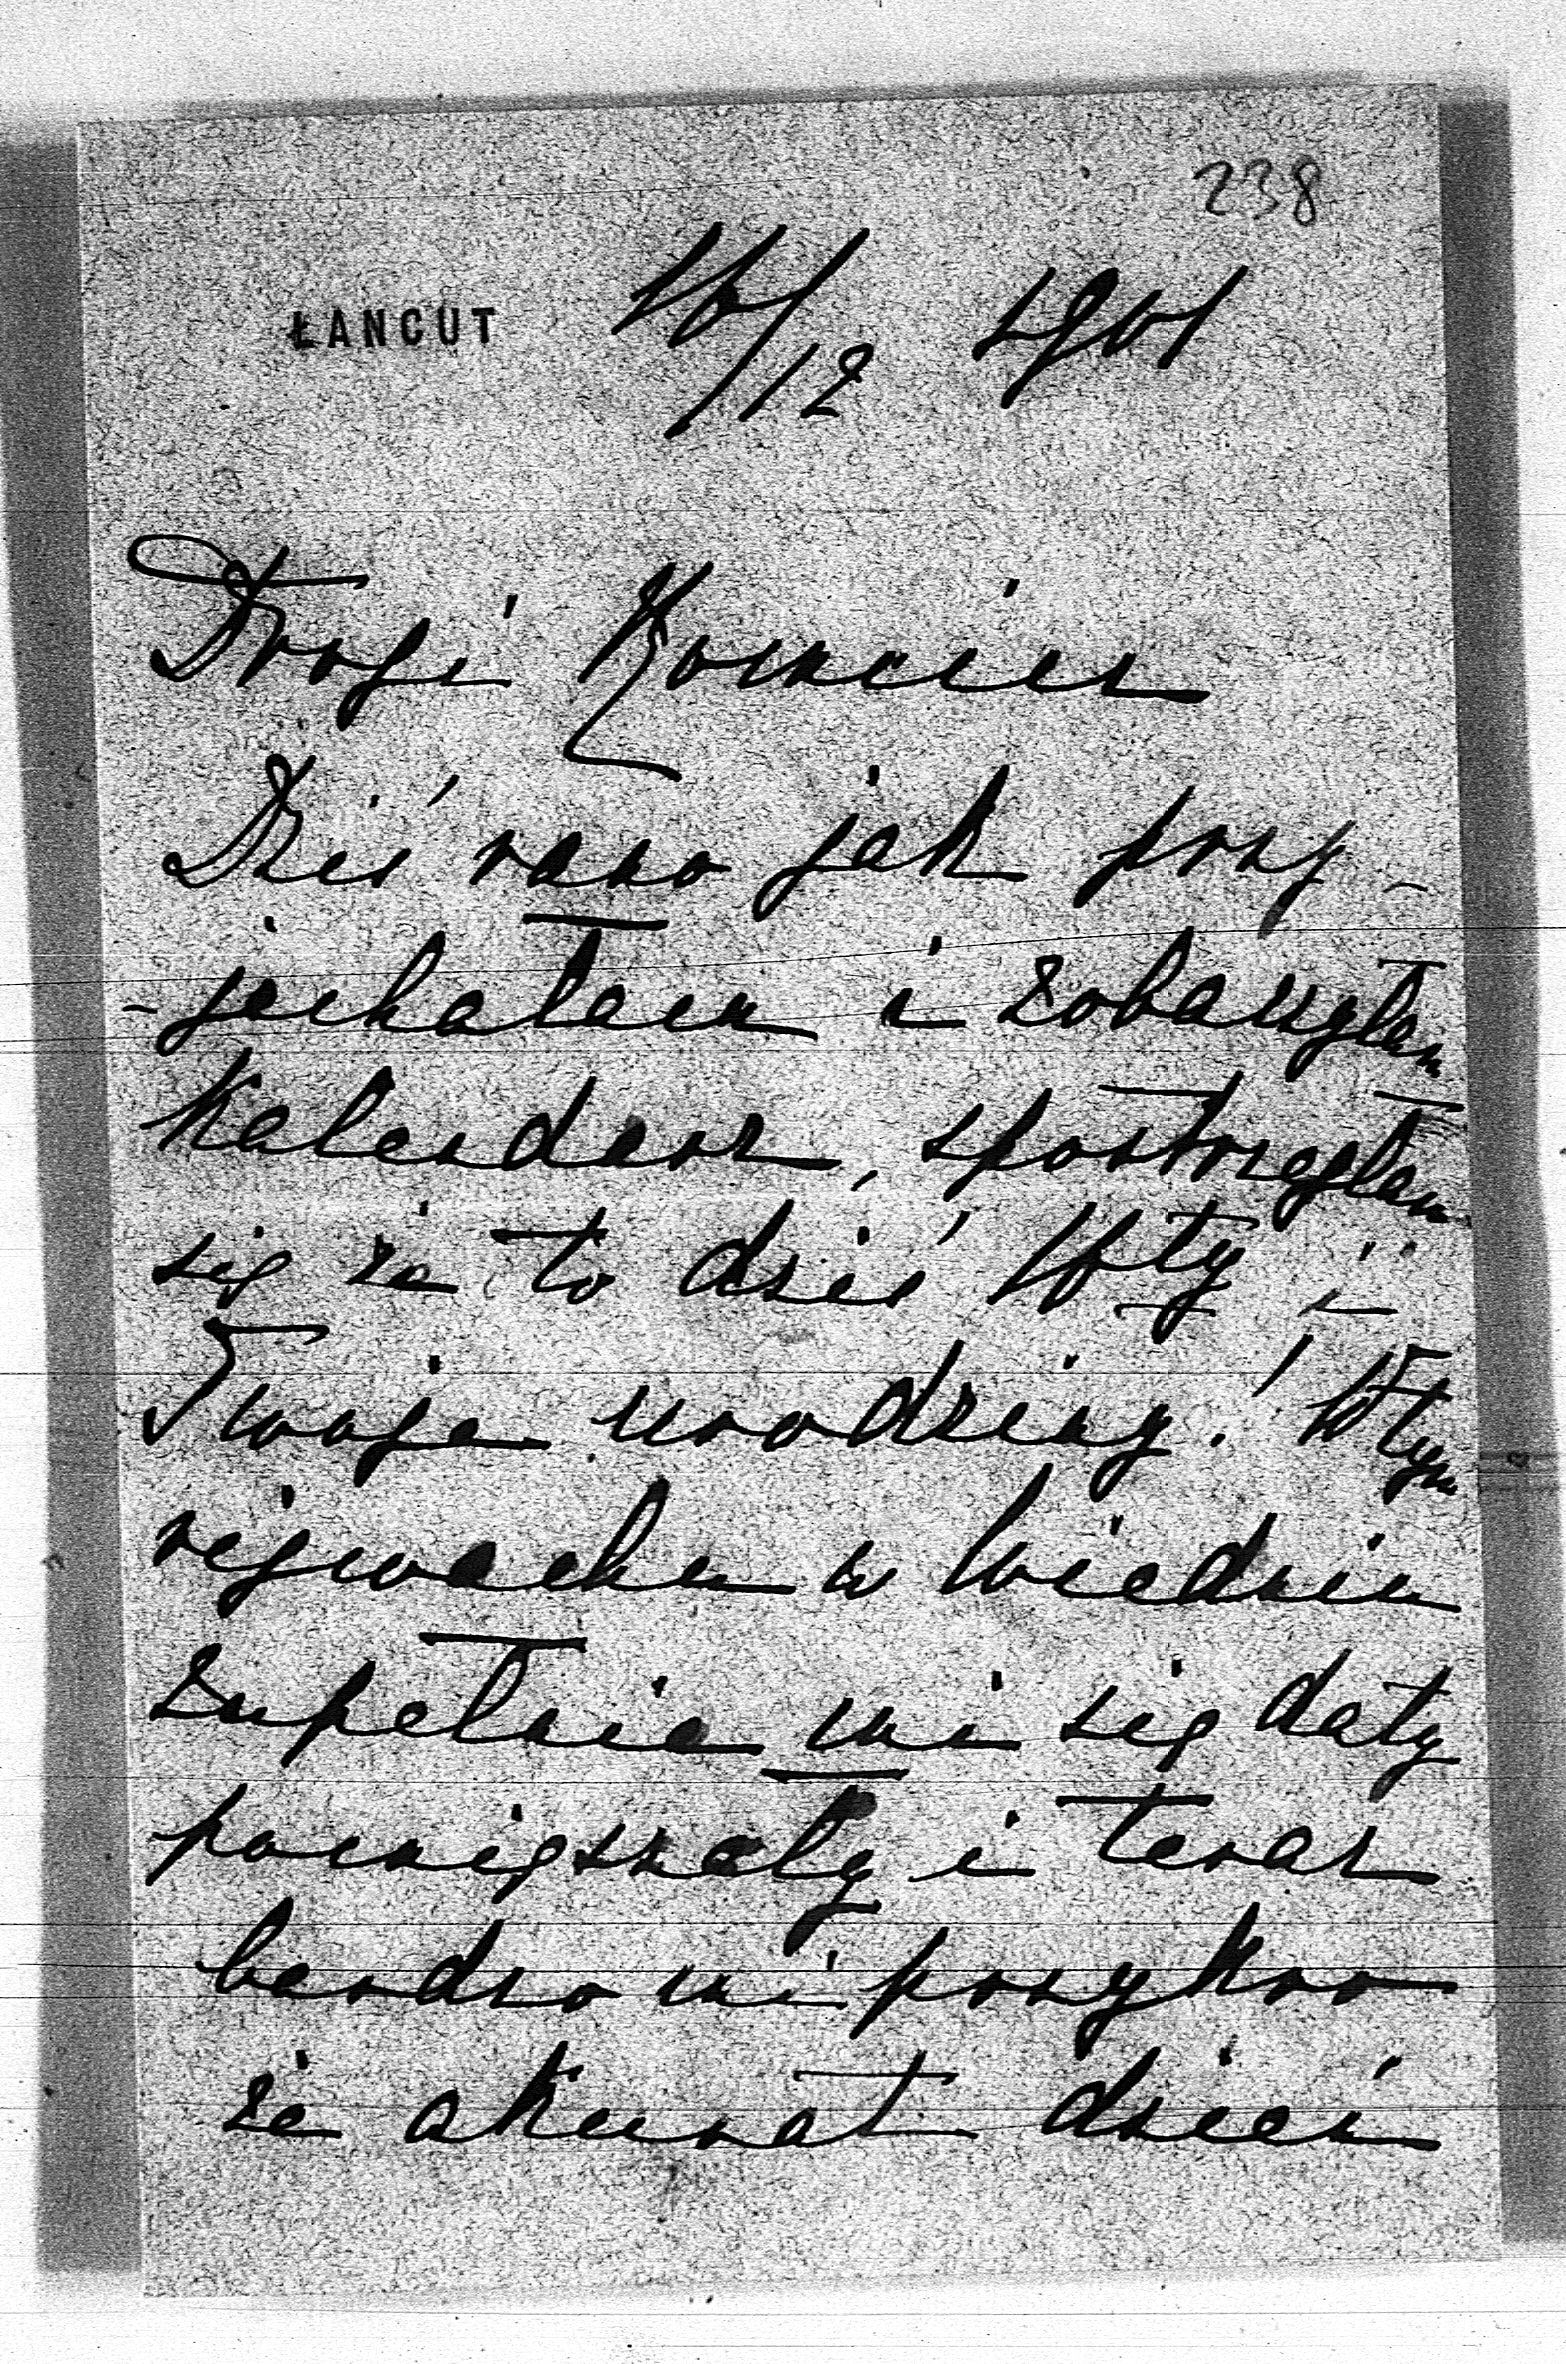 238
ŁANCUT 16/12 1901
Drogi
Dziś rano jak przy-
-jechałem i zobaczyłem
Kalendarz, spostrzegłem
się że to dziś 16ty i
Twoje urodziny! W tym
rejwachu w Wiedniu
zupełnie mi się daty
pomięszały i teraz
bardzo mi przykro
że akurat dzień